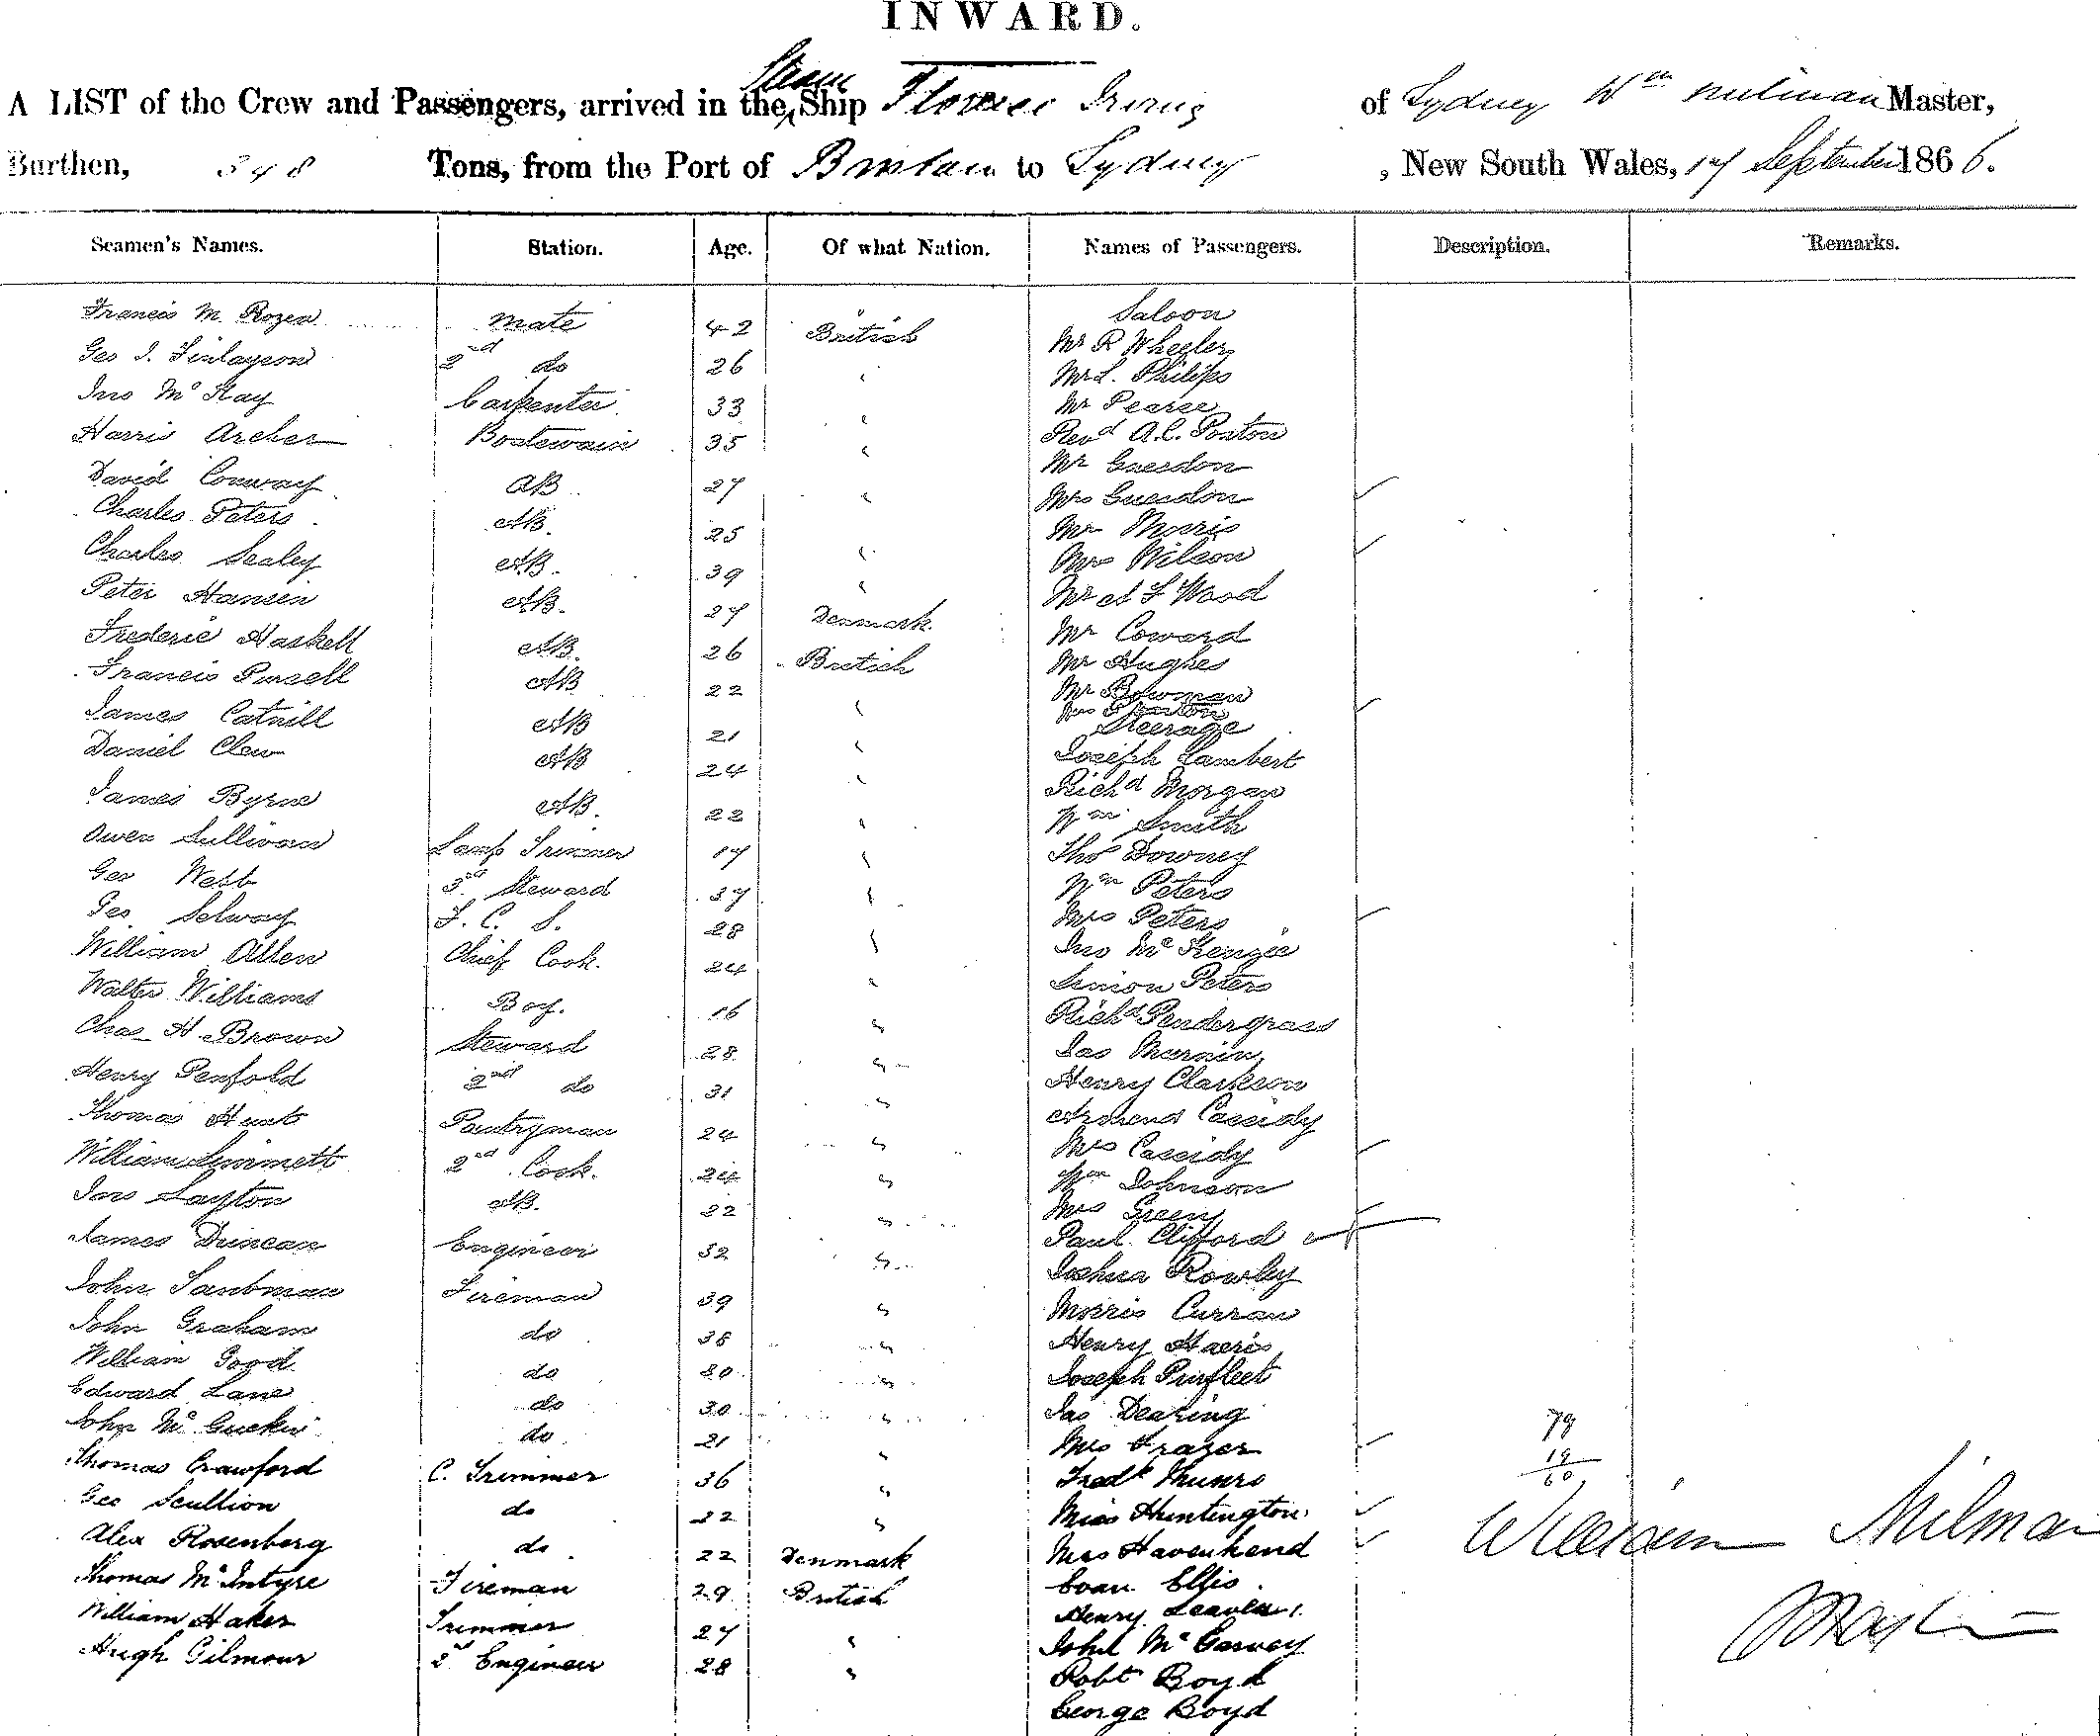 INWARD.
A LIST of the Crew and Passengers, arrived in the Steam Ship Florence Irving of Sydney Wm Milman Master,
Burthen, 348 Tons, from the Port of Brisbane to Sydney, New South Wales, 17 September 1866.
Seamen's Names. Station. Age. Of what Nation. Names of Passengers. Description. Remarks.
Francis M. Rozea mate 42 British Saloon
Geo J. Finlayson 2nd do 26 " Mr R Wheeler
Jno McKay Carpenter 33 " Mr L. Philips
Harris Archer Boatswain 35 " Mr Pearse
David Conway AB 27 " Revd A.C.
Charles Peters AB. 25 " Mr Guesdon
Charles Sealey AB. 39 " Mrs Guesdon
Peter Hansen AB. 27 Denmark Mr Morris
Frederic Haskell AB. 26 British Mrs Wilson
Francis Pursell AB 22 " Mr A F Wood
James Catnill AB 21 " Mr Coward
Daniel Clew AB 24 " Mr Hughes
James Byrne AB. 22 " Mr Bowman
Owen Sullivan Lamp Trimmer 17 " Mrs
Geo Webb 3rd Steward 37 " Steerage
Geo Selway F. C. S. 28 " Joseph Lambert
William Allen Chief Cook. 24 " Richd Morgan
Walter Williams Boy. 16 " Wm Smith
Chas H. Brown Steward 28 " Thos Downey
Henry Penfold 2nd do 31 " Wm Peters
Thomas Hunt Pantryman 24 " Mrs Peters
William Simmett 2nd Cook. 24 " Jno McKenzie
Jno Layton AB. 22 " Simon Peters
James Duncan Engineer 32 " Richd Pendergrass
John Sandman Fireman 39 " Jas
John Graham do 38 " Henry Clarkson
William Good do 30 " Cassidy
Edward Lane do 30 " Mrs Cassidy
John McGuckin do 21 " Wm Johnson
Thomas Crawford C. Trimmer 36 " Mrs Green
Geo Scullion do 22 " Paul Clifford
Alex Rosenberg do 22 Denmark Joshua Rowley
Thomas McIntyre Fireman 29 British Morris Curran
William Haker Trimmer 27 " Henry Harris
Hugh Gilmour 2d Engineer 28 " Joseph Purfleet
Jas Dearing
Mrs Frazer
Fredk Munro
Miss Huntington
Mrs Havenhand
Evan Ellis.
Henry
John McGarvey
Robt Boyd
George Boyd
79
19
60
William Milman